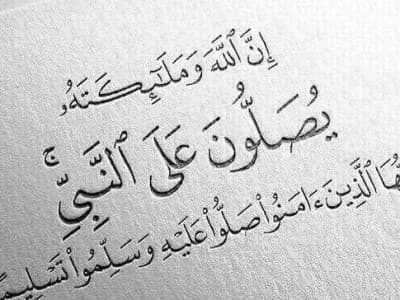 إِنَّ ٱللَّهَ وَمَلَٰٓئِكَتَهُۥ
يُصَلُّونَ عَلَى ٱلنَّبِيِّ ۚ
ٱلَّذِينَ ءَامَنُوا۟ صَلُّوا۟ عَلَيْهِ وَسَلِّمُوا۟